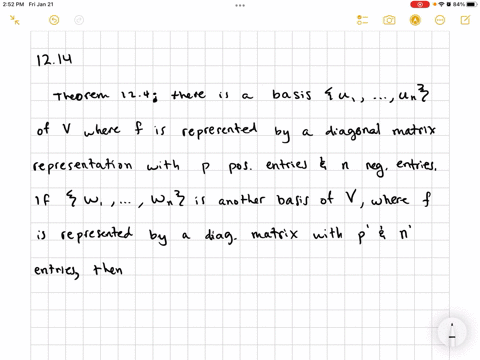 2:52 PM Fri Jan 21
84%
12.14
Theorem 12.4; there is a basis {u₁, ..., uₙ}
of V where f is represented by a diagonal matrix
representation with p pos. entries & n neg. entries.
If {w₁, ..., wₙ} is another basis of V, where f
is represented by a diag. matrix with p' & n'
entries, then